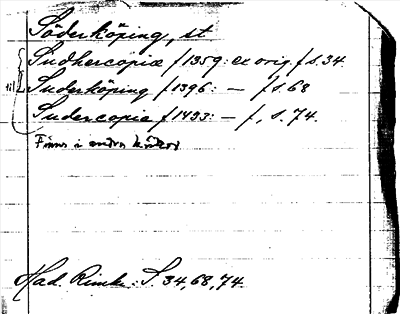 Söderköping, st
Sudhercopia f 1359: ex orig. f s. 34.
Suderköping f 1396: — f s. 68
Sudercopia f 1433: — f, s. 74.
Finns i andra
Had. Rimk. S. 34, 68, 74.